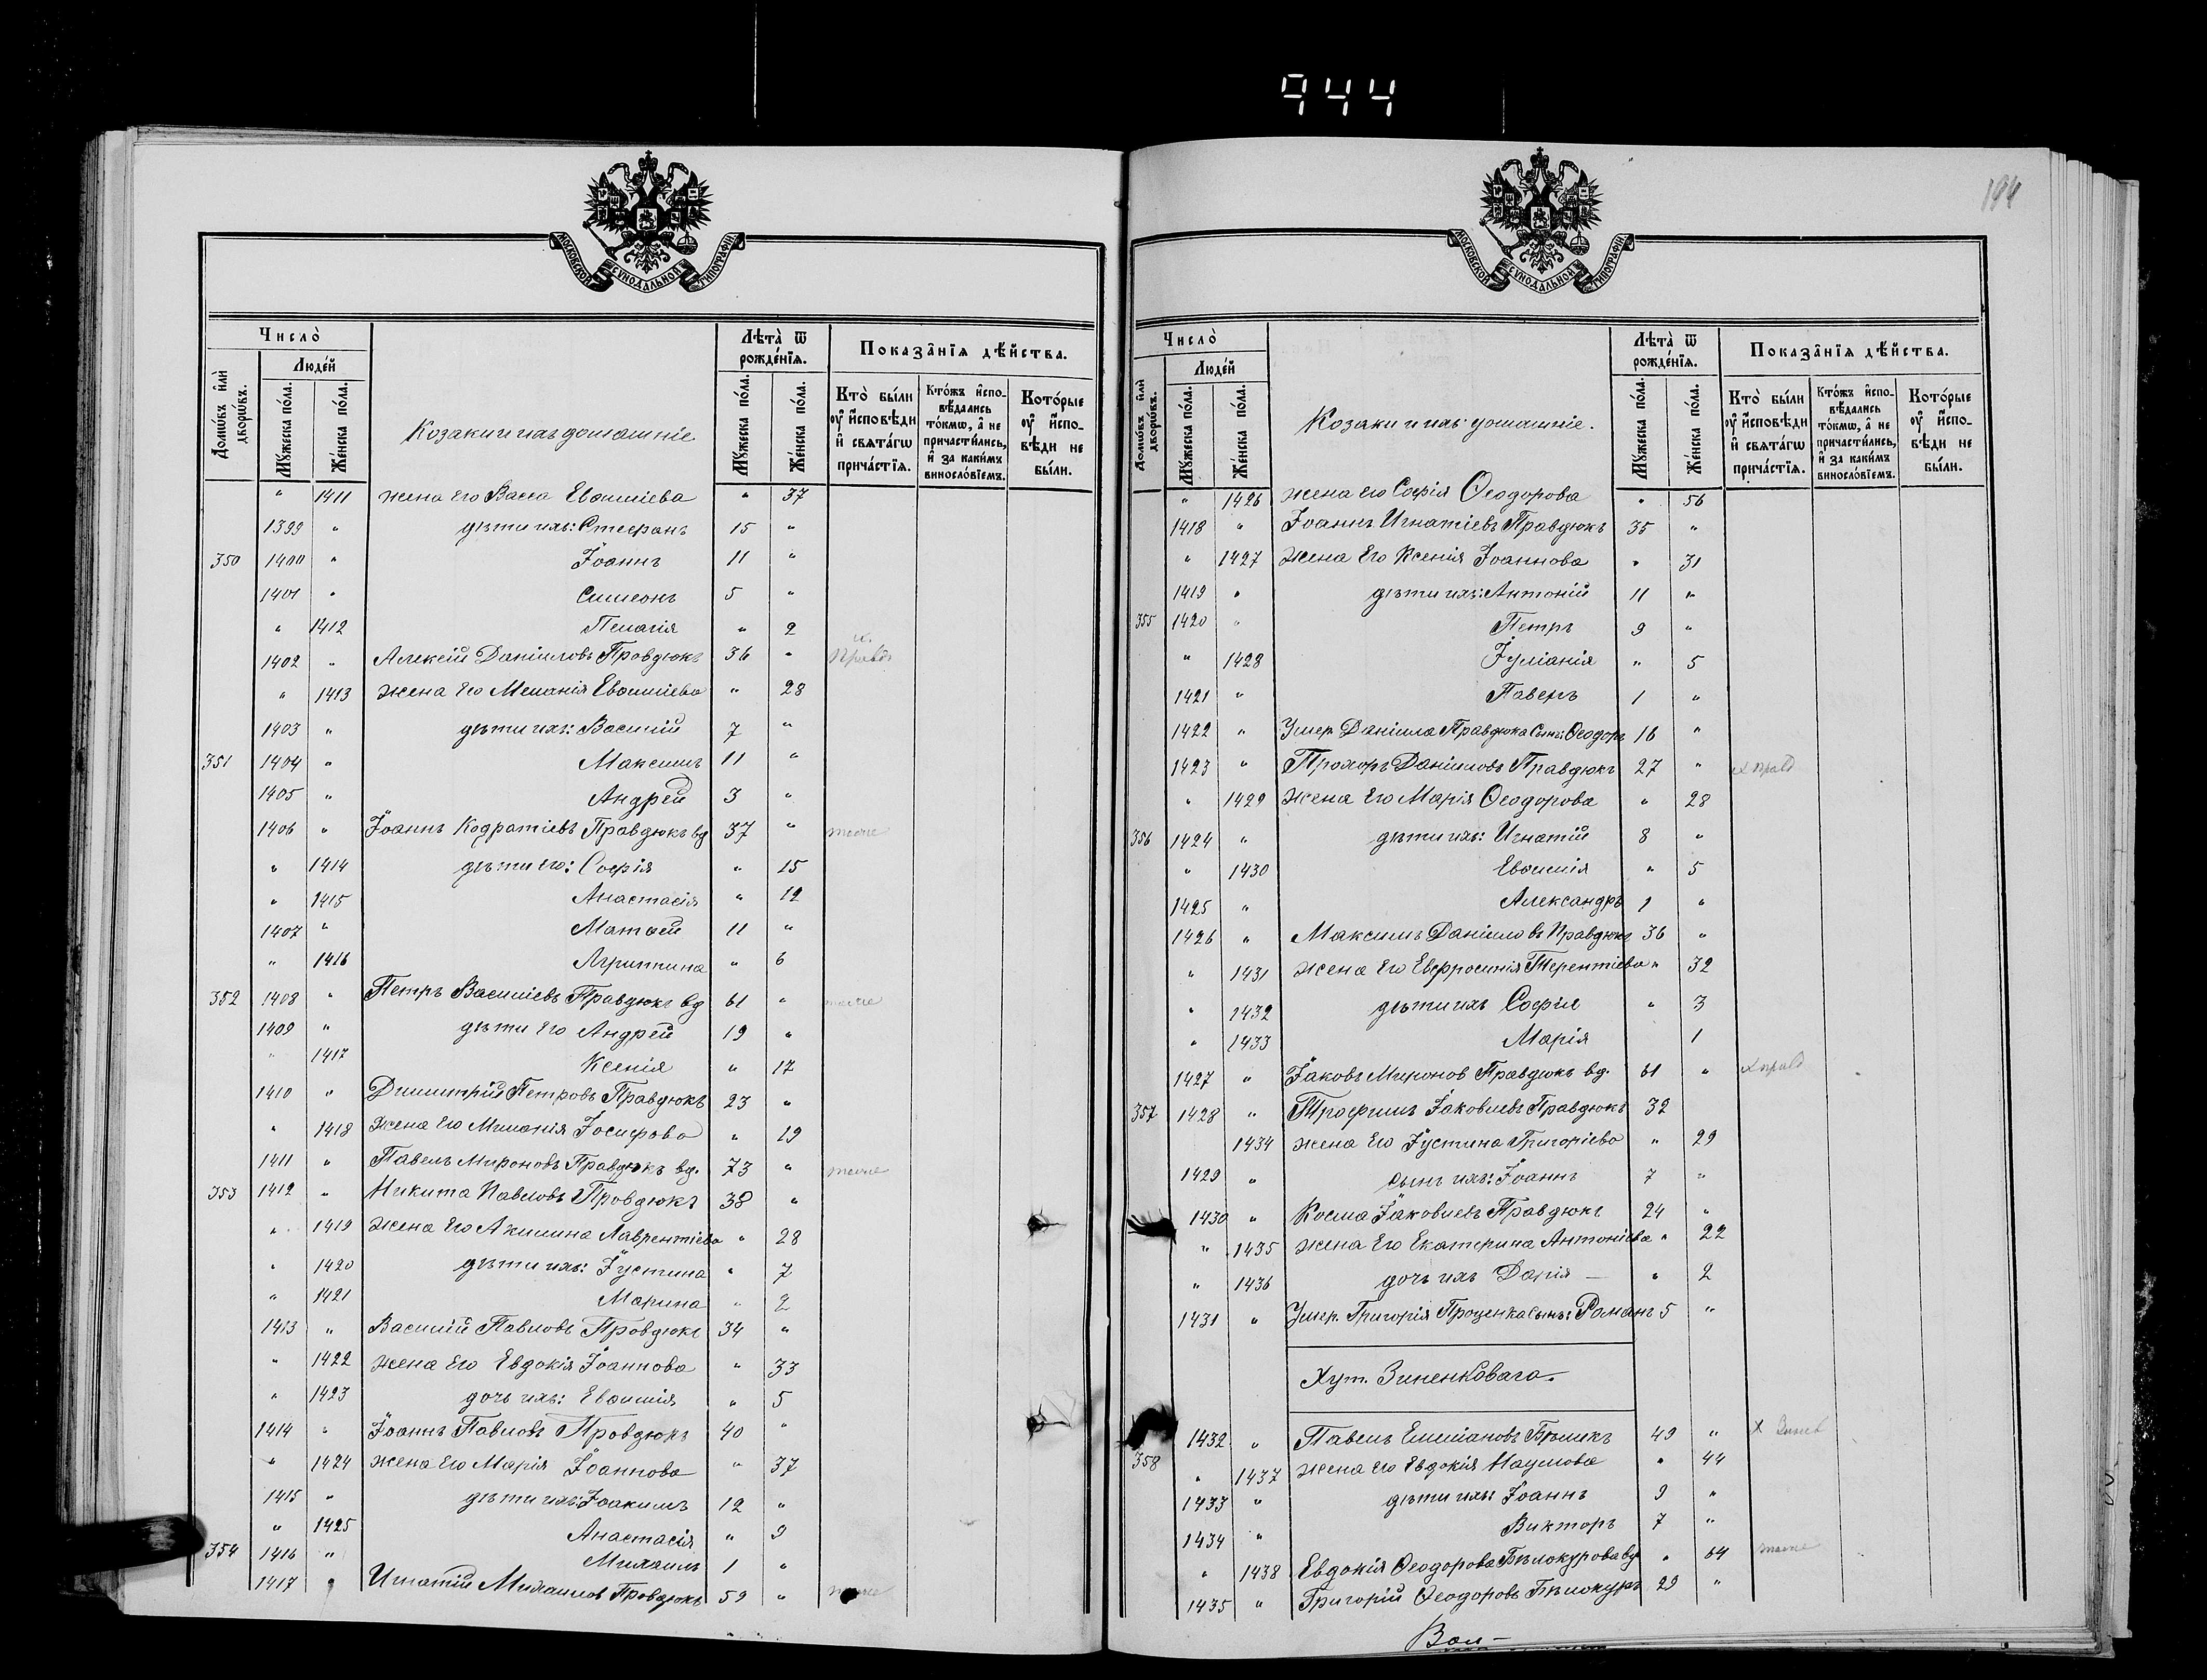 944
МОСКОВСКОЙ СѴНОДАЛЬНОЙ ТИПОГРАФІИ.
Число̀
Людéй
Домѡ́въ и҆лѝ дворѡ́въ.
Мꙋ́жеска по́ла.
Же́нска по́ла.
Козаки и ихъ домашніе
Лѣта̀ ѿ рожде́нїѧ.
Мꙋ́жеска по́ла.
Же́нска по́ла.
Показа̂нїѧ дѣ́йства.
Кто̀ бы́ли ᲂу҆ и҆́сповѣди и҆ свѧта́гѡ прича́стїѧ.
Кто́жъ и҆сповѣ́дались то́кмѡ, а҆ не причасти́лись, и҆ за каки́мъ винословїемъ.
Кото́рые ᲂу҆ и҆́сповѣди не бы́ли.
" 1411 жена его Васса Евѳиміева " 37
1399 " дѣти ихъ: Стефанъ 15 "
350 1400 " Іоаннъ 11 "
1401 " Симеонъ 5 "
" 1412 Пелагія " 2
1402 " Алексій Даніиловъ Правдюкъ 36 "
" 1413 жена его Меланія Евѳиміева " 28
1403 " дѣти ихъ: Василій 7 "
351 1404 " Максимъ 11 "
1405 " Андрей 3 "
1406 " Іоаннъ Кодратіевъ Правдюкъ вд 37 " тоже
" 1414 дѣти его: Софія " 15
" 1415 Анастасія " 12
1407 " Матѳей 11 "
" 1416 Агриппина " 6
352 1408 " Петръ Василіевъ Правдюкъ вд 61 " тоже
1409 " дѣти его Андрей 19 "
" 1417 Ксенія " 17
1410 " Димитрій Петровъ Правдюкъ 23 "
" 1418 жена его Меланія Іосифова " 19
1411 " Павелъ Мироновъ Правдюкъ вд. 73 " тоже
353 1412 " Никита Павловъ Правдюкъ 38 "
" 1419 жена его Акилина Лаврентіева " 28
" 1420 дѣти ихъ: Іустина " 7
" 1421 Марина " 2
1413 " Василій Павловъ Правдюкъ 34 "
" 1422 жена его Евдокія Іоаннова " 33
" 1423 дочь ихъ: Евѳимія " 5
1414 " Іоаннъ Павловъ Правдюкъ 40 "
" 1424 жена его Марія Іоаннова " 37
1415 " дѣти ихъ: Іоакимъ 12 "
" 1425 Анастасія " 9
354 1416 " Михаилъ 1 "
1417 " Игнатій Михаиловъ Правдюкъ 59 "
МОСКОВСКОЙ СѴНОДАЛЬНОЙ ТИПОГРАФІИ.
Число̀
Людéй
Домѡ́въ и҆лѝ дворѡ́въ.
Мꙋ́жеска по́ла.
Же́нска по́ла.
Козаки и ихъ домашніе.
Лѣта̀ ѿ рожде́нїѧ.
Мꙋ́жеска по́ла.
Же́нска по́ла.
Показа̂нїѧ дѣ́йства.
Кто̀ бы́ли ᲂу҆ и҆́сповѣди и҆ свѧта́гѡ прича́стїѧ.
Кто́жъ и҆сповѣ́дались то́кмѡ, а҆ не причасти́лись, и҆ за каки́мъ винословїемъ.
Кото́рые ᲂу҆ и҆́сповѣди не бы́ли.
" 1426 жена его Софія Ѳеодорова " 56
1418 " Іоаннъ Игнатіевъ Правдюкъ 35 "
" 1427 жена его Ксенія Іоаннова " 31
1419 " дѣти ихъ: Антоній 11 "
355 1420 " Петръ 9 "
" 1428 Іуліанія " 5
1421 " Павелъ 1 "
1422 " Умер. Даніила Правдюка Сынъ: Ѳеодоръ 16 "
1423 " Прохоръ Даніиловъ Правдюкъ 27 " х правд
" 1429 жена его Марія Ѳеодорова " 28
356 1424 " дѣти ихъ: Игнатій 8 "
" 1430 Евѳимія " 5
1425 " Александръ 1 "
1426 " Максимъ Даніиловъ Правдюкъ 36 "
" 1431 жена его Евфросинія Терентіева " 32
" 1432 дѣти ихъ Софія " 3
" 1433 Марія 1
1427 " Іаковъ Миронов Правдюкъ вд. 61 " х правд
357 1428 " Трофимъ Іаковлевъ Правдюкъ 32
1434 жена его Іустина Григоріева " 29
1429 " сынъ ихъ: Іоаннъ 7 "
1430 " Косма Іаковлевъ Правдюкъ 24 "
" 1435 жена его Екатерина Антоніева " 22
" 1436 дочь ихъ Дарія — " 2
1431 " Умер. Григорія Проценка Сынъ: Романъ 5 "
Хут. Зиненковаго.
1432 " Павелъ Емеліановъ 49 "
358 " 1437 жена его Евдокія Наумова " 44
1433 " дѣти ихъ: Іоаннъ 9 "
1434 " Викторъ 7 "
" 1438 Евдокія Ѳеодорова Бѣлокурова вд " 64 тоже
1435 " Григорій Ѳеодоровъ Бѣлокуръ 29 "